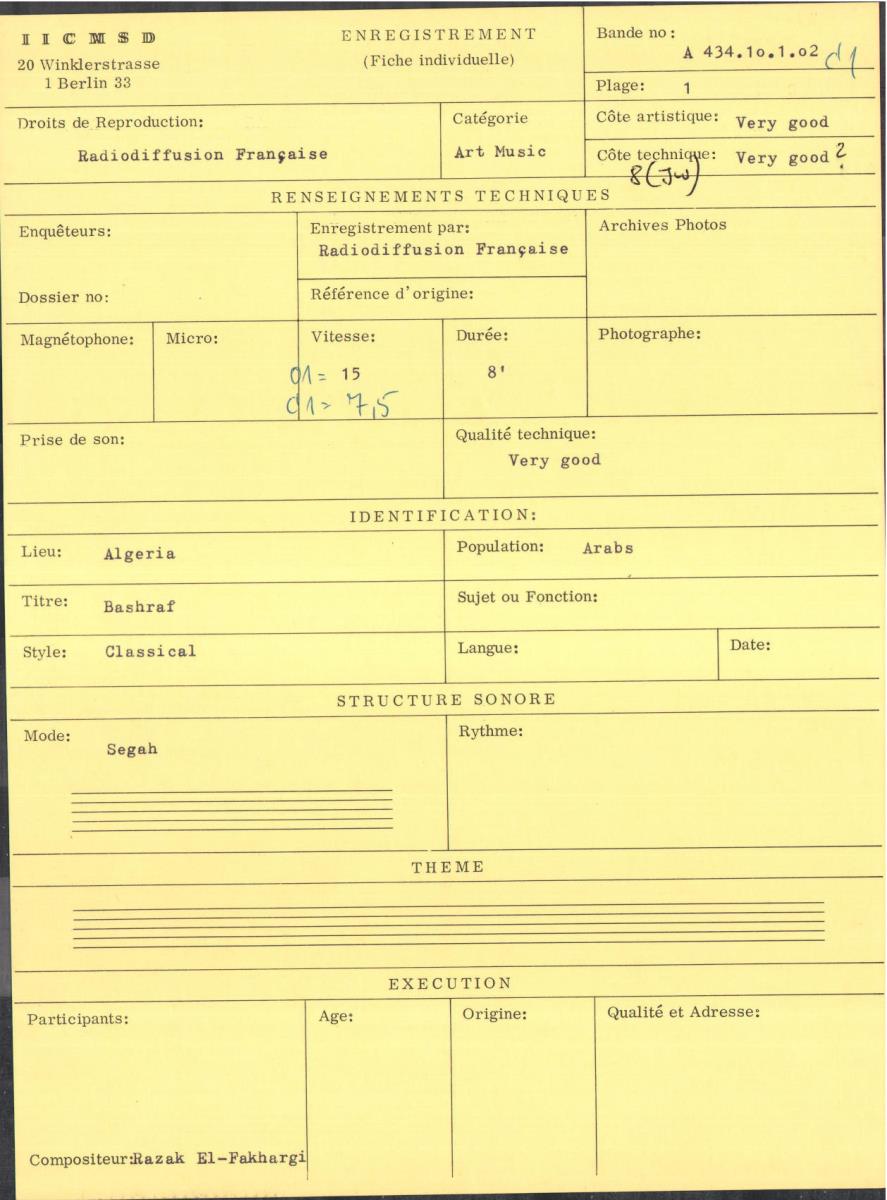 IICMSD
20 Winklerstrasse
1 Berlin 33
ENREGISTREMENT
(Fiche individuelle)
Bande no:
A 434.1o.1.o2 d1
Plage: 1
Droits de Reproduction:
Radiodiffusion Française
Catégorie
Art Music
Côte artistique: Very good
Côte technique: Very good ?
8 (JW)
RENSEIGNEMENTS TECHNIQUES
Enquêteurs:
Dossier no:
Enregistrement par:
Radiodiffusion Française
Référence d'origine:
Archives Photos
Magnétophone:
Micro:
Vitesse:
01= 15
d1= 7,5
Durée:
8'
Photographe:
Prise de son:
Qualité technique:
Very good
IDENTIFICATION:
Lieu: Algeria
Population: Arabs
Titre: Bashraf
Sujet ou Fonction:
Style: Classical
Langue:
Date:
STRUCTURE SONORE
Mode:
Segah
Rythme:
THEME
EXECUTION
Participants:
Age:
Origine:
Qualité et Adresse:
Compositeur:Razak El-Fakhargi